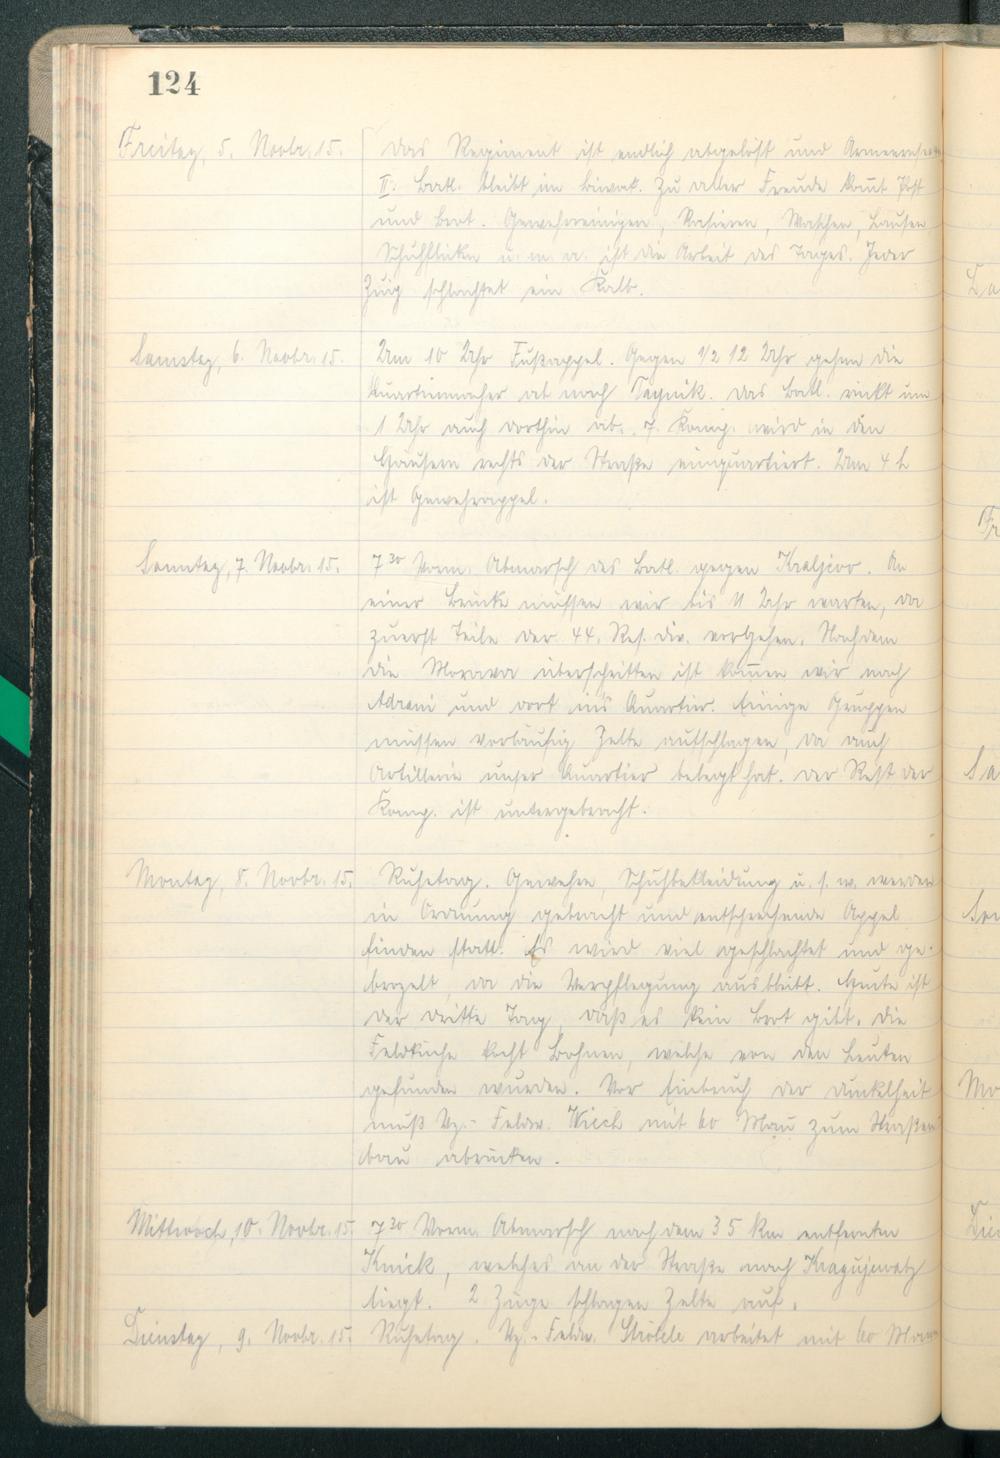 124
Freitag, 5. Novbr. 15. Das Regiment ist endlich abgelöst und Armeereserve
II. Batl. bleibt im Biwak. Zu aller Freude kom̅t Post
und Brot. Gewehrreinigen, Rasieren, Waschen, Lausen
Schuhflicken u. m. a. ist die Arbeit des Tages. Jeder
Zug schlachtet ein Kalb.
Samstag, 6. Novbr. 15. Um 10 Uhr Fußappel. Gegen 1/2 12 Uhr gehen die
Quartiermacher ab nach. Das Batl. rückt um
1 Uhr auch dorthin ab. 7. Komp. wird in den
Häusern rechts der Straße einquartiert. Um 4 h
ist Gewehrappel.
Sonntag, 7. Novbr. 15. 7 30 Vorm. Abmarsch des Batl. gegen Kraljevo. An
einer Brücke müssen wir bis 11 Uhr warten, da
zuerst Teile der 44. Res. Div. vorgehen. Nachdem
die Morava überschritten ist kom̅en wir nach
Adrani und dort ins Quartier. Einige Gruppen
müssen vorläufig Zelte aufschlagen, da auch
Artillerie unser Quartier belegt hat. Der Rest der
Komp. ist untergebracht.
Montag, 8. Novbr. 15. Ruhetag. Gewehre, Schuhbekleidung u. s. w. werden
in Ordnung gebracht und entsprechende Appel
finden statt. Es wird viel geschlachtet und ge-
brozelt, da die Verpflegung ausbleibt. Heute ist
der dritte Tag, daß es kein Brot gibt. Die
Feldküche kocht Bohnen, welche von den Leuten
gefunden wurden. Vor Einbruch der Dunkelheit
muß Vz.-Feldw. Wiech mit 60 Man̅ zum Straßen
bau abrücken.
Mittwoch, 10. Novbr. 15. 7 30 Vorm. Abmarsch nach dem 35 km entfernten
Knick, welches an der Straße nach Kragujewatz
liegt. 2 Züge schlagen Zelte auf.
Dienstag, 9. Novbr. 15. Ruhetag. Vz.-Feldw. Ströbele arbeitet mit 60 Mann